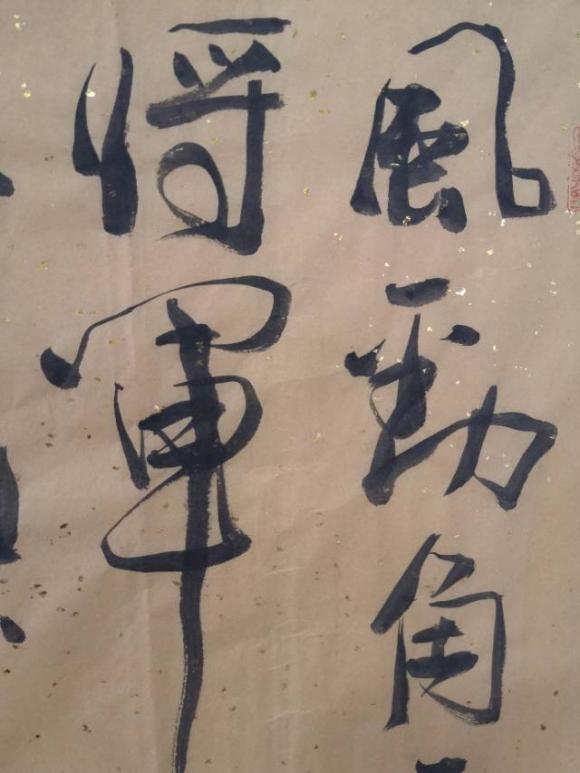 風勁角
将軍